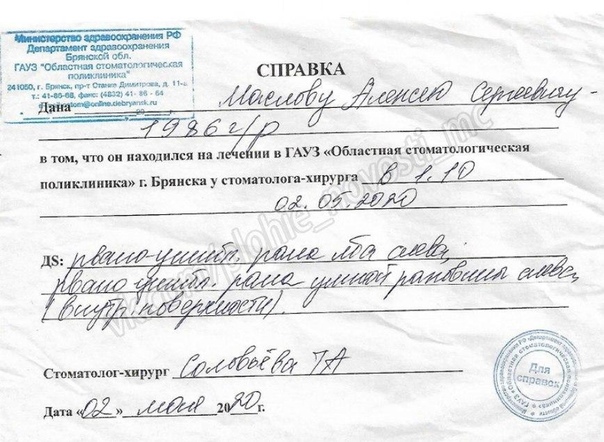 Министерство здравоохранения РФ
Департамент здравоохранения
Брянской обл.
ГАУЗ "Областная стоматологическая
поликлиника"
241050, г. Брянск, пр-т Станке Димитрова, д. 11-а
т.: 41-86-68, факс: (4832) 41-
stom@online.debryansk.ru
СПРАВКА
Дана Маслову Алексею Сергеевичу -
1986 г/р
в том, что он находился на лечении в ГАУЗ «Областная стоматологическая
поликлиника» г. Брянска у стоматолога-хирурга в 1.10
02.05.2020
ДS: рвано-ушибл. рана лба слева,
рвано-ушибл. рана ушной раковины слева
(внутр. поверхности).
Стоматолог-хирург Соловьёва ТА
Для
справок
Дата «02» мая 2020 г.